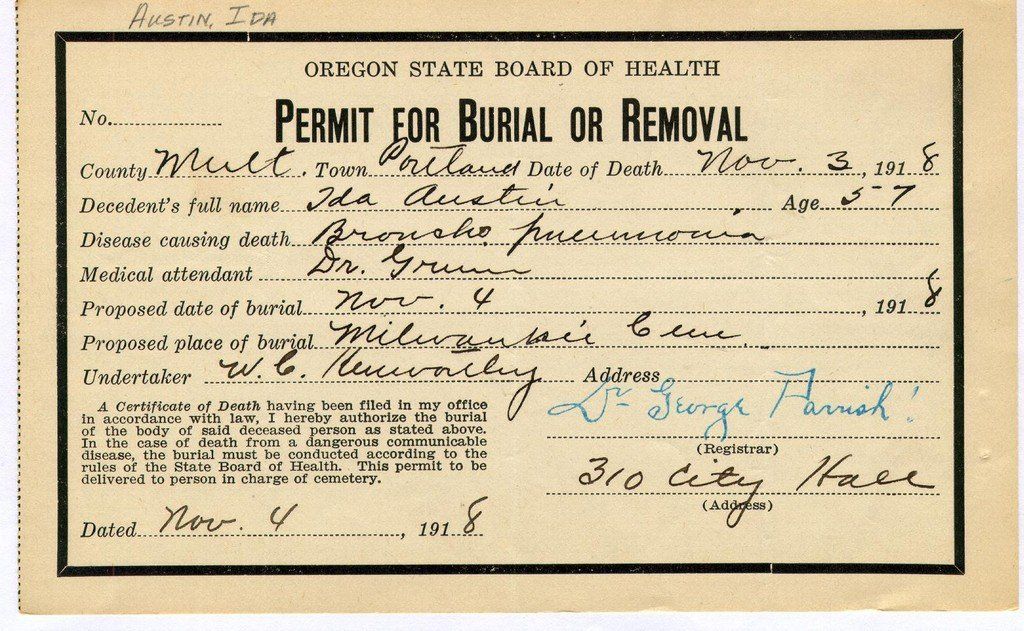 AUSTIN, IDA
OREGON STATE BOARD OF HEALTH
No.
PERMIT FOR BURIAL OR REMOVAL
County Mult. Town Portland Date of Death Nov. 3, 1918
Decedent's full name Ida Austin Age 57
Disease causing death Broncho pneumonia
Medical attendant Dr.
Proposed date of burial Nov. 4, 1918
Proposed place of burial Milwaukie Cem.
Undertaker W. C. Kenworthy Address
A Certificate of Death having been filed in my office
in accordance with law, I hereby authorize the burial
of the body of said deceased person as stated above.
In the case of death from a dangerous communicable
disease, the burial must be conducted according to the
rules of the State Board of Health. This permit to be
delivered to person in charge of cemetery.
Dr George Parrish
(Registrar)
310 City Hall
(Address)
Dated Nov. 4, 1918